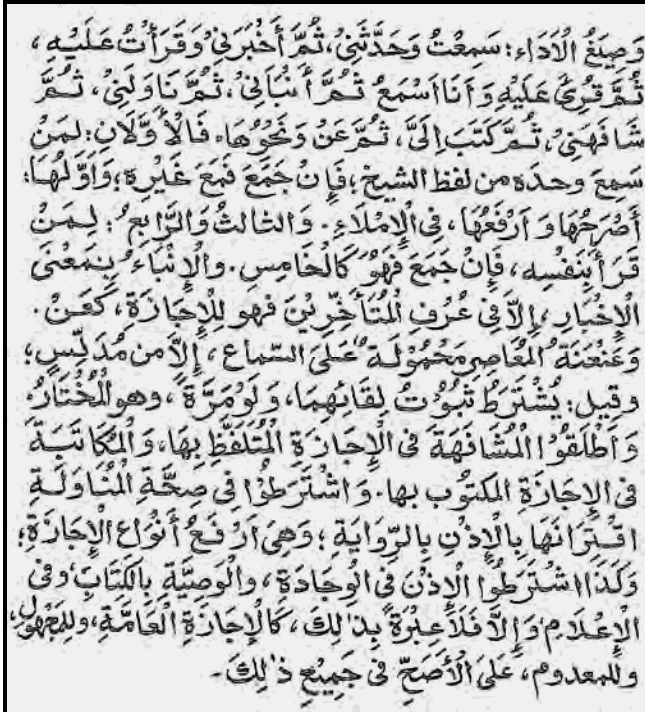 وَصِيَغُ الْاَدَاءِ: سَمِعْتُ وَحَدَّثَنِيْ، ثُمَّ أَخْبَرَنِيْ وَقَرَأْتُ عَلَيْهِ،
ثُمَّ قُرِئَ عَلَيْهِ وَأَنَا اَسْمَعُ ثُمَّ أَنْبَأَنِيْ، ثُمَّ نَاوَلَنِيْ، ثُمَّ
شَافَهَنِيْ، ثُمَّ كَتَبَ اِلَىَّ، ثُمَّ عَنْ وَنَحْوُهَا. فَالْأَوَّلَانِ: لِمَنْ
سَمِعَ وحدَه من لفظ الشيخ، فَإِنْ جَمَعَ فَمَعَ غَيْرِه؛ وَاَوَّلُهَا:
أَصْرَحُهَا وَاَرْفَعُهَا، فِى الْاِمْلَاءِ. وَالثالثُ وَالرَّابِعُ: لِمَنْ
قَرَأَ بِنَفْسِه، فَإِنْ جَمَعَ فَهُوَ كَالْخَامِسِ. والْإِنْبَاءُ بِمَعْنَى
الْاِخْبَارِ، إِلَّا فِى عُرْفِ الْمُتَأَخِّرِيْنَ فهو لِلْإِجَازَةِ، كَعَنْ.
وَعَنْعَنَةُ الْمُعَاصِرِ مَحْمُوْلَةٌ عَلَى السّماع، إِلَّا من مُدَلِّسٍ؛
وقيل: يُشْتَرَطُ ثُبُوْتُ لِقَائِهِمَا، وَلَوْ مَرَّةً، وهو الْمُخْتَارُ
وَأَطْلَقُوْا الْمُشَافَهَةَ فى الْإِجَازَةِ الْمُتَلَفَّظِ بِهَا، وَالْمُكَاتَبَةَ
فى الْاِجَازَةِ المَكتُوْبِ بها. وَاشْتَرَطُوْا فِى صِحَّةِ الْمُنَاوَلَةِ
اقْتِرَانَهَا بِالْاِذْنِ بِالرِّوَايَةِ؛ وَهِىَ اَرْفَعُ أَنْوَاعِ الْإِجَازَةِ؛
وَكَذَا اشْتَرَطُوا الْاِذْنَ فِى الْوِجَادَةِ، والْوَصِيَّةِ بِالْكِتَابِ، وفى
الْاِعْلَامِ، وَإِلَّا فَلَا عِبْرَةَ بِذٰلِكَ، كَالْإِجَازَةِ الْعَامَّةِ، وللمَجْهُوْلِ،
وللمعدوم، عَلَى الْأَصَحِّ فى جَمِيْعِ ذٰلِكَ۔